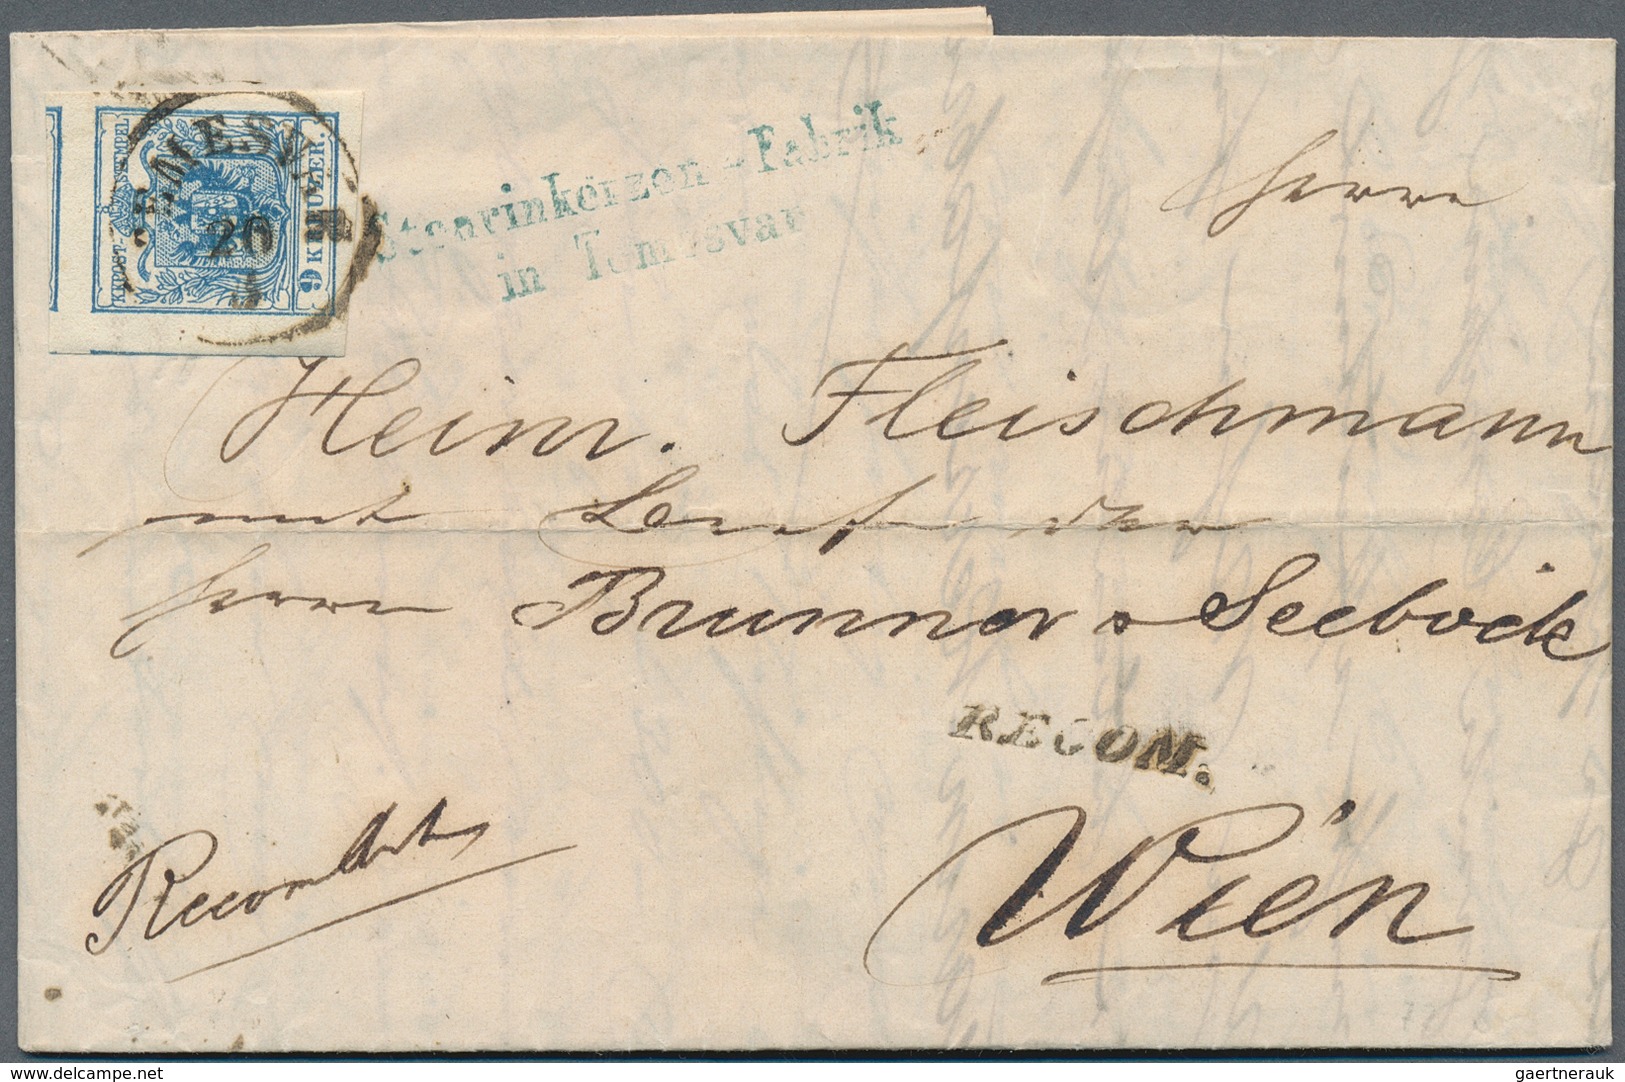 KKPOST-STEMPEL
9 KREUZER.
TEMESVAR
20
Stearinkerzen-Fabrik
in Temesvar
Herrn
Heinr. Fleischmann
mit der
Herren Brunner & Seeböck
RECOM.
Recomdt
Wien
www.delcampe.net
gaertnerauk